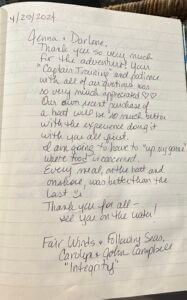 4/20/2024
Jenna + Darlene,
Thank you so very much
for the adventure! Your
"Captain Training" and patience
with all of our questions was
so very much appreciated ♡♡
Our own recent purchase of
a boat will be so much better
with the experience doing it
with you all first.
I am going to have to "up my game"
were food is concerned.
Every meal, on the boat and
onshore, was better than the
last
Thank you for all –
See you on the water!
Fair Winds + Following Seas,
Carolyn + John Campbell
"Integrity"